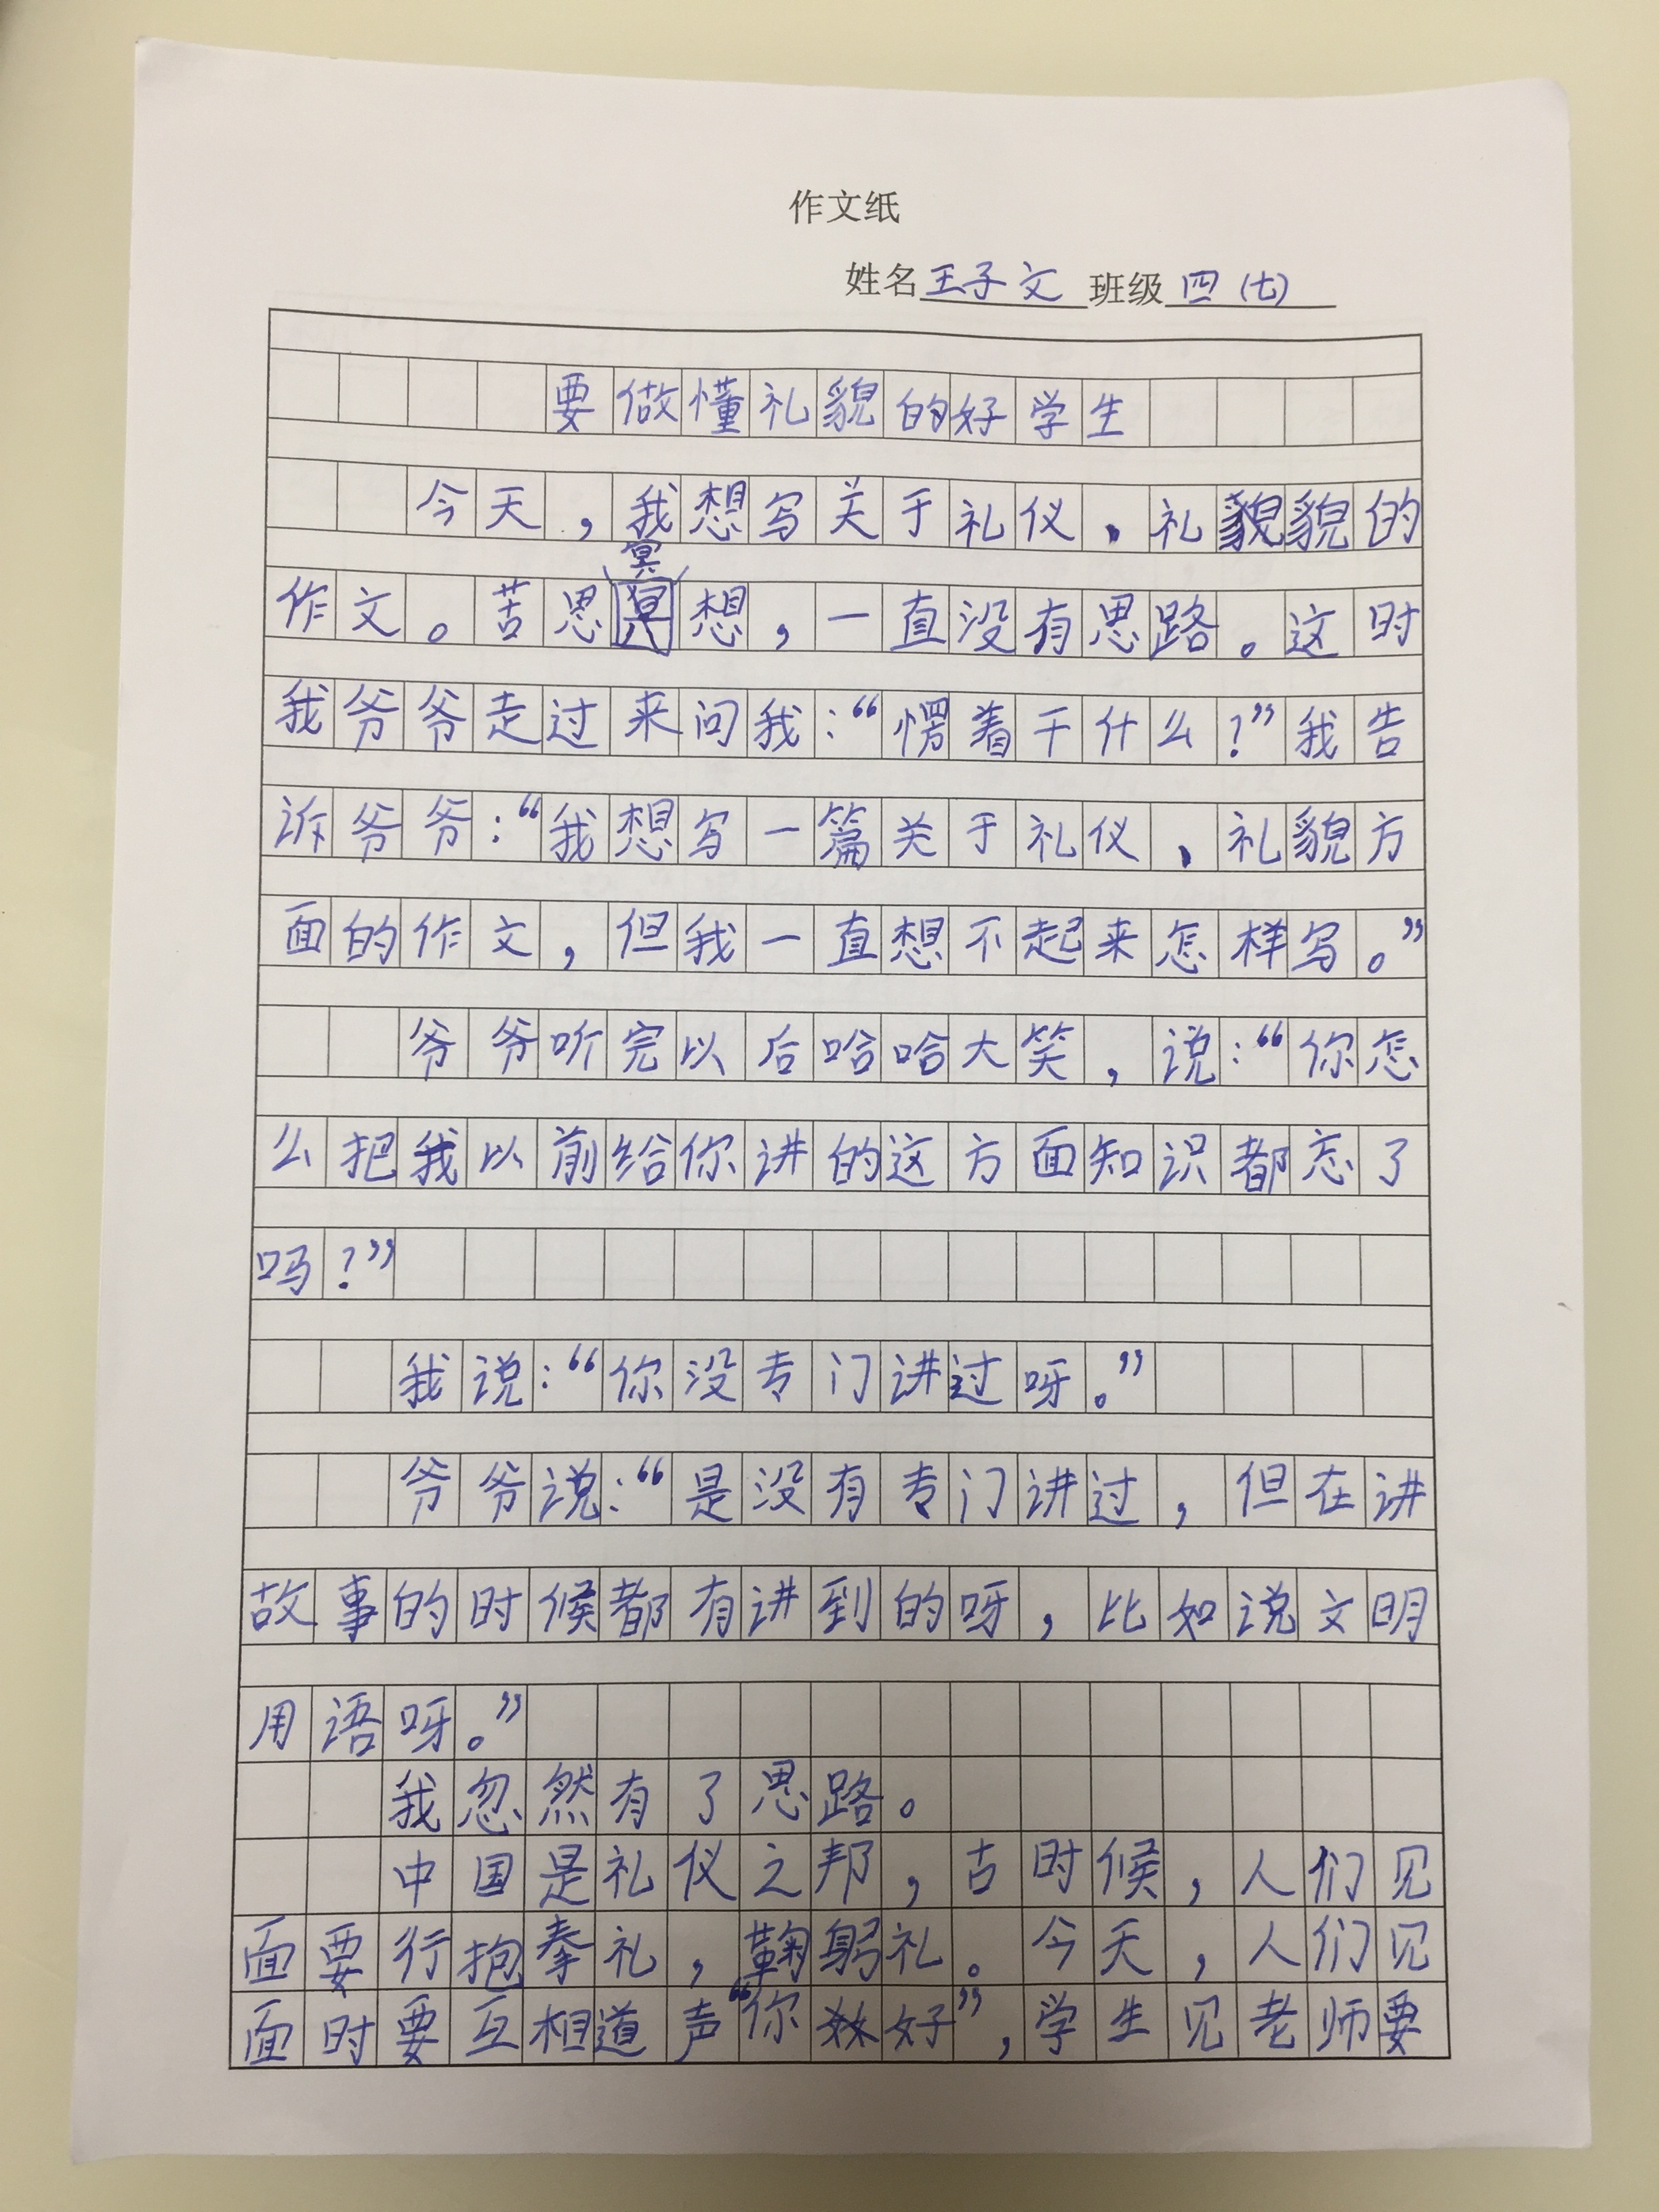 作文纸
姓名 王子文 班级 四(七)
要做懂礼貌的好学生
今天，我想写关于礼仪、礼貌的
作文。苦思冥想，一直没有思路。这时
我爷爷走过来问我：“愣着干什么？”我告
诉爷爷：“我想写一篇关于礼仪、礼貌方
面的作文，但我一直想不起来怎样写。”
爷爷听完以后哈哈大笑，说：“你怎
么把我以前给你讲的这方面知识都忘了
吗？”
我说：“你没专门讲过呀。”
爷爷说：“是没有专门讲过，但在讲
故事的时候都有讲到的呀，比如说文明
用语呀。”
我忽然有了思路。
中国是礼仪之邦，古时候，人们见
面要行抱拳礼，鞠躬礼。今天，人们见
面时要互相道声“你好”，学生见老师要